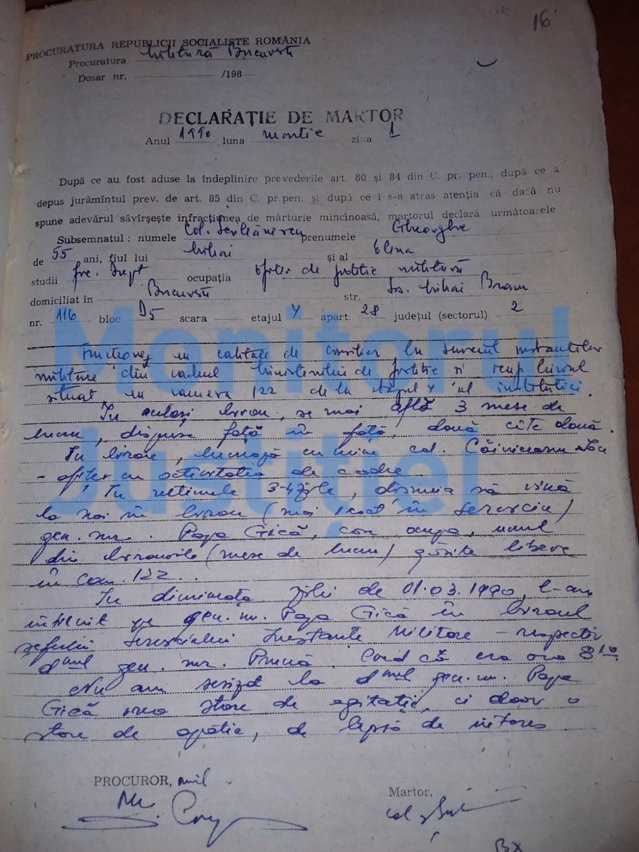 16
PROCURATURA REPUBLICII SOCIALISTE ROMÂNIA
Procuratura Militară București
Dosar nr. /198
DECLARAȚIE DE MARTOR
Anul 1990 luna martie ziua 1
După ce au fost aduse la îndeplinire prevederile art. 80 și 84 din C. pr. pen., după ce a
depus jurămîntul prev. de art. 85 din C. pr. pen. și după ce i s-a atras atenția că dacă nu
spune adevărul săvîrșește infracțiunea de mărturie mincinoasă, martorul declară următoarele
Subsemnatul : numele Col. prenumele Gheorghe
de 55 ani, fiul lui Mihai și al Elena
studii drept ocupația ofițer de justiție militară
domiciliat în București str. Mihai Bravu
nr. 116 bloc D5 scara etajul 4 apart. 28 județul (sectorul) 2
Funcționez în calitate de consilier la instanțelor
militare din cadrul Ministerului de Justiție și ocup biroul
situat în camera 122 de la etajul al instituției.
În același birou, se mai află 3 mese de
lucru, dispuse față în față, două cîte două.
În birou, lucrează cu mine col.
- ofițer cu activitatea de cadre.
În ultimele 3-4 zile, să vină
la noi în birou (mai în serviciu)
gen. mr. Popa Gică, care ocupa, unul
din birourile (mese de lucru) libere
în cam. 122.
În dimineața zilei de 01.03.1990, l-am
întîlnit pe gen. mr. Popa Gică în biroul
șefului Instanțe Militare - respectiv
dnul gen. mr. Cred că era ora 8 10
Nu am sesizat la dnul gen. mr. Popa
Gică vreo stare de agitație, ci doar o
stare de apatie, de lipsă de interes.
PROCUROR, mil.
Martor,
Monitorul
Justiției